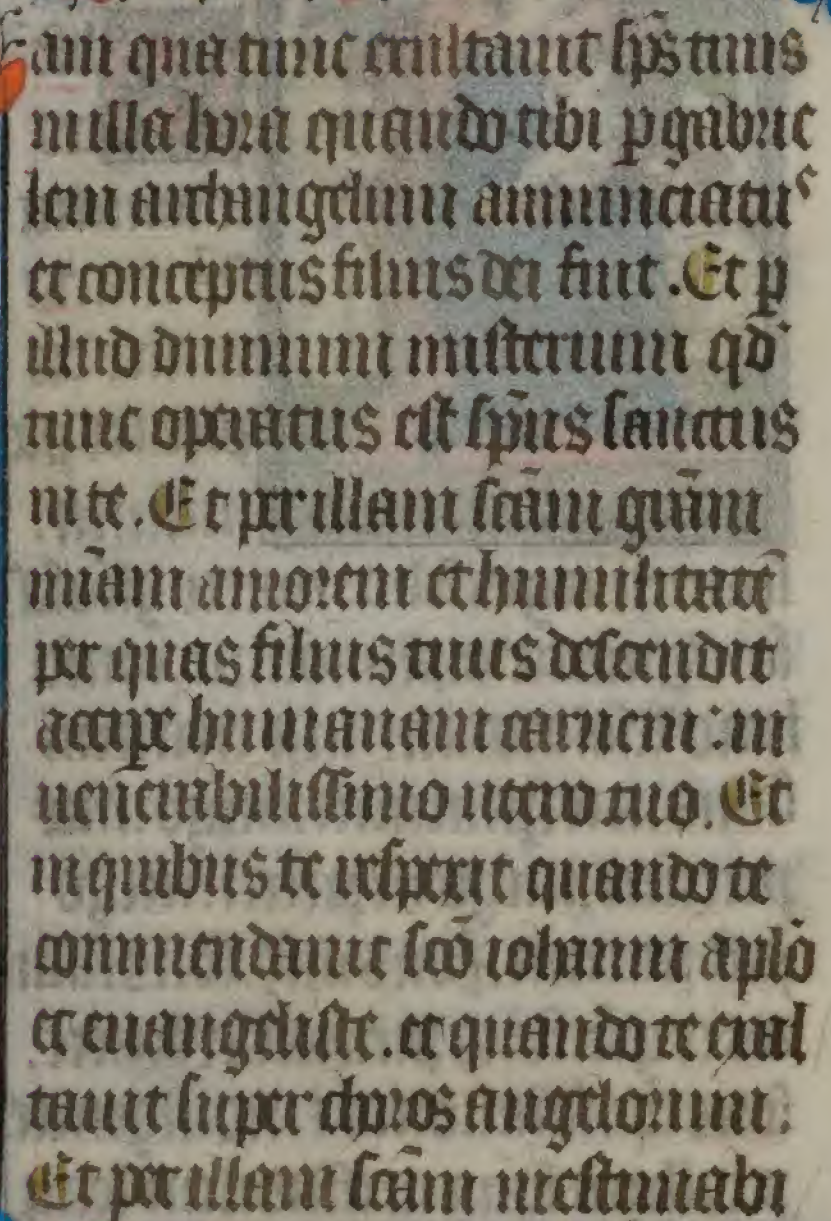 am qua tunc exultauit sp̄s tuus
in illa hora quando tibi ꝑ gabrie
lem archangelum annunciatus
et conceptus filius dei fuit. Et ꝑ
illud diuinum misterium qd̓
tunc operatus est sp̄us sanctus
in te. Et per illam sc̄am gr̄am
mīam amorem et humilitatē
per quas filius tuus descendit
accipe humanam carnem: in
uen̄erabilissimo utero tuo. Et
in quibus te respexit quando te
commendauit sc̄o iohanni apl̄o
et euangeliste. et quando te exal
tauit super choros angelorum.
Et per illam sc̄am inestimabi